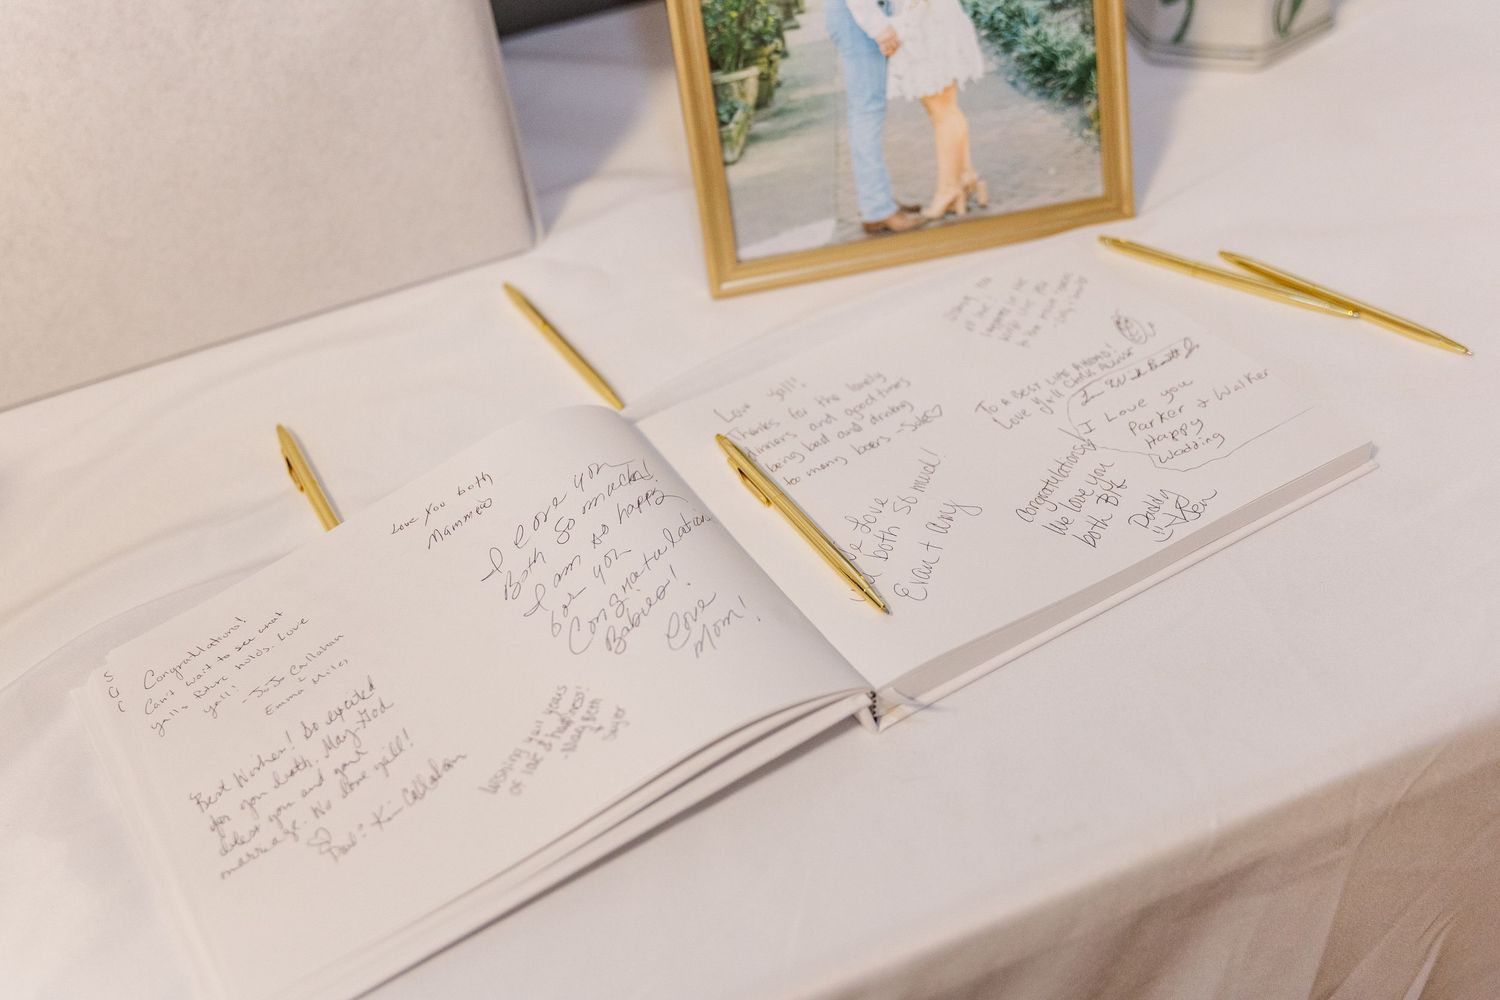 S
G
C
Congratulations!
Can't wait to see what
yalls future holds. Love
yall!
- JoJo Callahan
Emma Miles
Best Wishes! So excited
for you
May God
bless you and your
marriage. We love yall!
Kim Callahan
Love You both
Mammeo
I love you
Both so much!
I am so happy
for you
Congratulations
Babies!
Love
Mom!
Wishing you years
of love & happiness!
-Mary Beth
+
Love yall!!
Thanks for the lovely
dinners and good times
being bad and drinking
to many beers -Jake
We Love
both so much!
Evan + Amy
To A BEST LIFE AHEAD!
Love Y'all
I Love you
Parker & Walker
Happy
Wedding
Congratulations
We love you
both Bit
Daddy
Jen